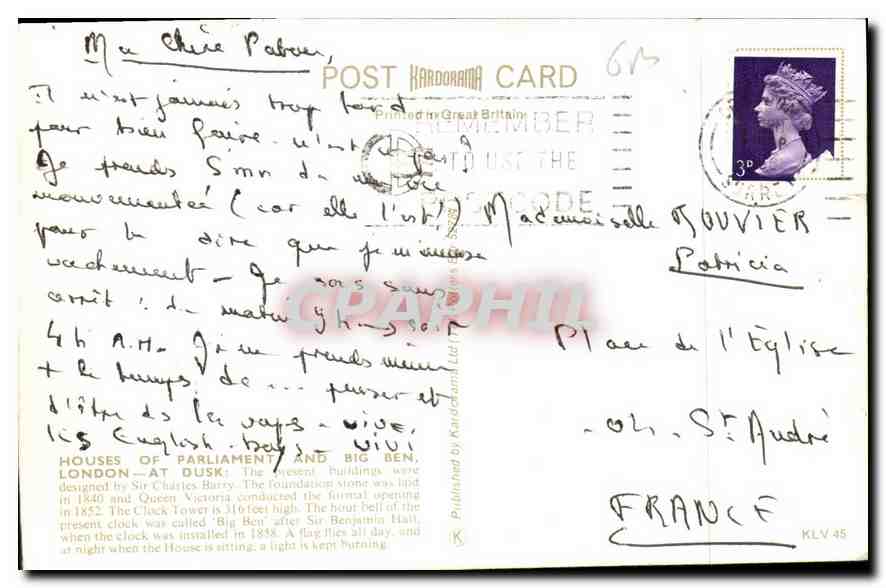 Ma Chère
POST KARDORAMA CARD
Printed in Great Britain
REMEMBER
TO USE THE
POSTCODE
3D
Il n'est jamais trop tard
pour bien faire - n'est ce pas?
Je prends 5 mn de
mouvementée (car elle l'est!)
pour te dire que je m'amuse
vachement - Je sors sans
arrêt : du matin 9h -> soir
4h A.M. Je ne prends même
+ le temps de ... penser et
d'être ds les vaps - VIVE
les English boys - VIVI
Mademoiselle ROUVIER
Patricia
Place de l'Église
- 04 - St. André
FRANCE
HOUSES OF PARLIAMENT AND BIG BEN,
LONDON—AT DUSK: The present buildings were
designed by Sir Charles Barry. The foundation stone was laid
in 1840 and Queen Victoria conducted the formal opening
in 1852. The Clock Tower is 316 feet high. The hour bell of the
present clock was called 'Big Ben' after Sir Benjamin Hall,
when the clock was installed in 1858. A flag flies all day, and
at night when the House is sitting, a light is kept burning.
Published by Kardorama Ltd
K
KLV 45
CPAPHIL